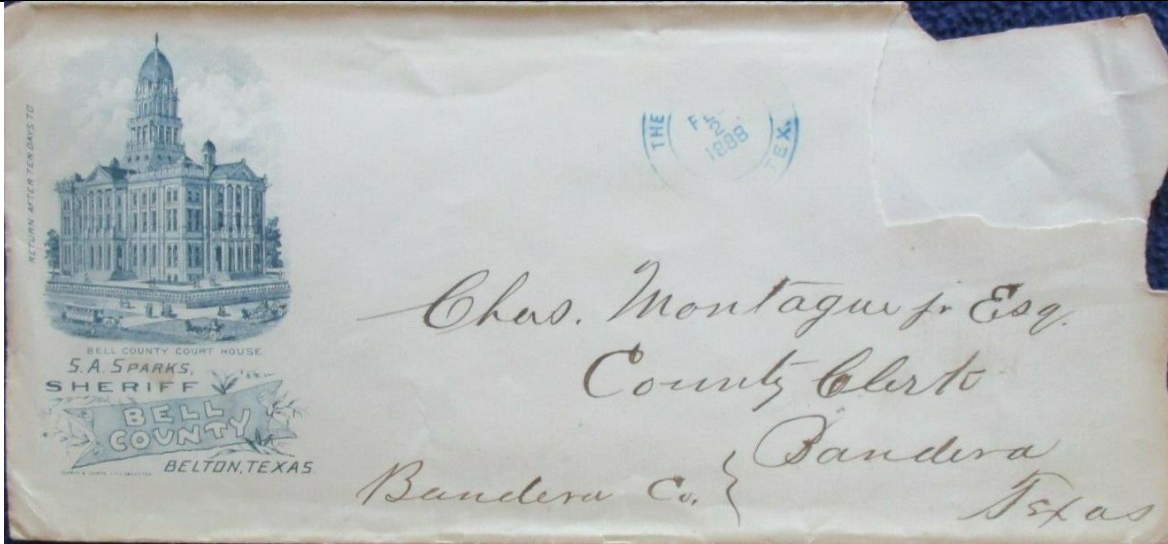 RETURN AFTER TEN DAYS TO
BELL COUNTY COURT HOUSE
S.A. SPARKS,
SHERIFF
BELL
COUNTY
BELTON, TEXAS
THE TEX.
2
1888
Chas. Montague jr Esq.
County Clerk
Bandera
Bandera Co.
Texas